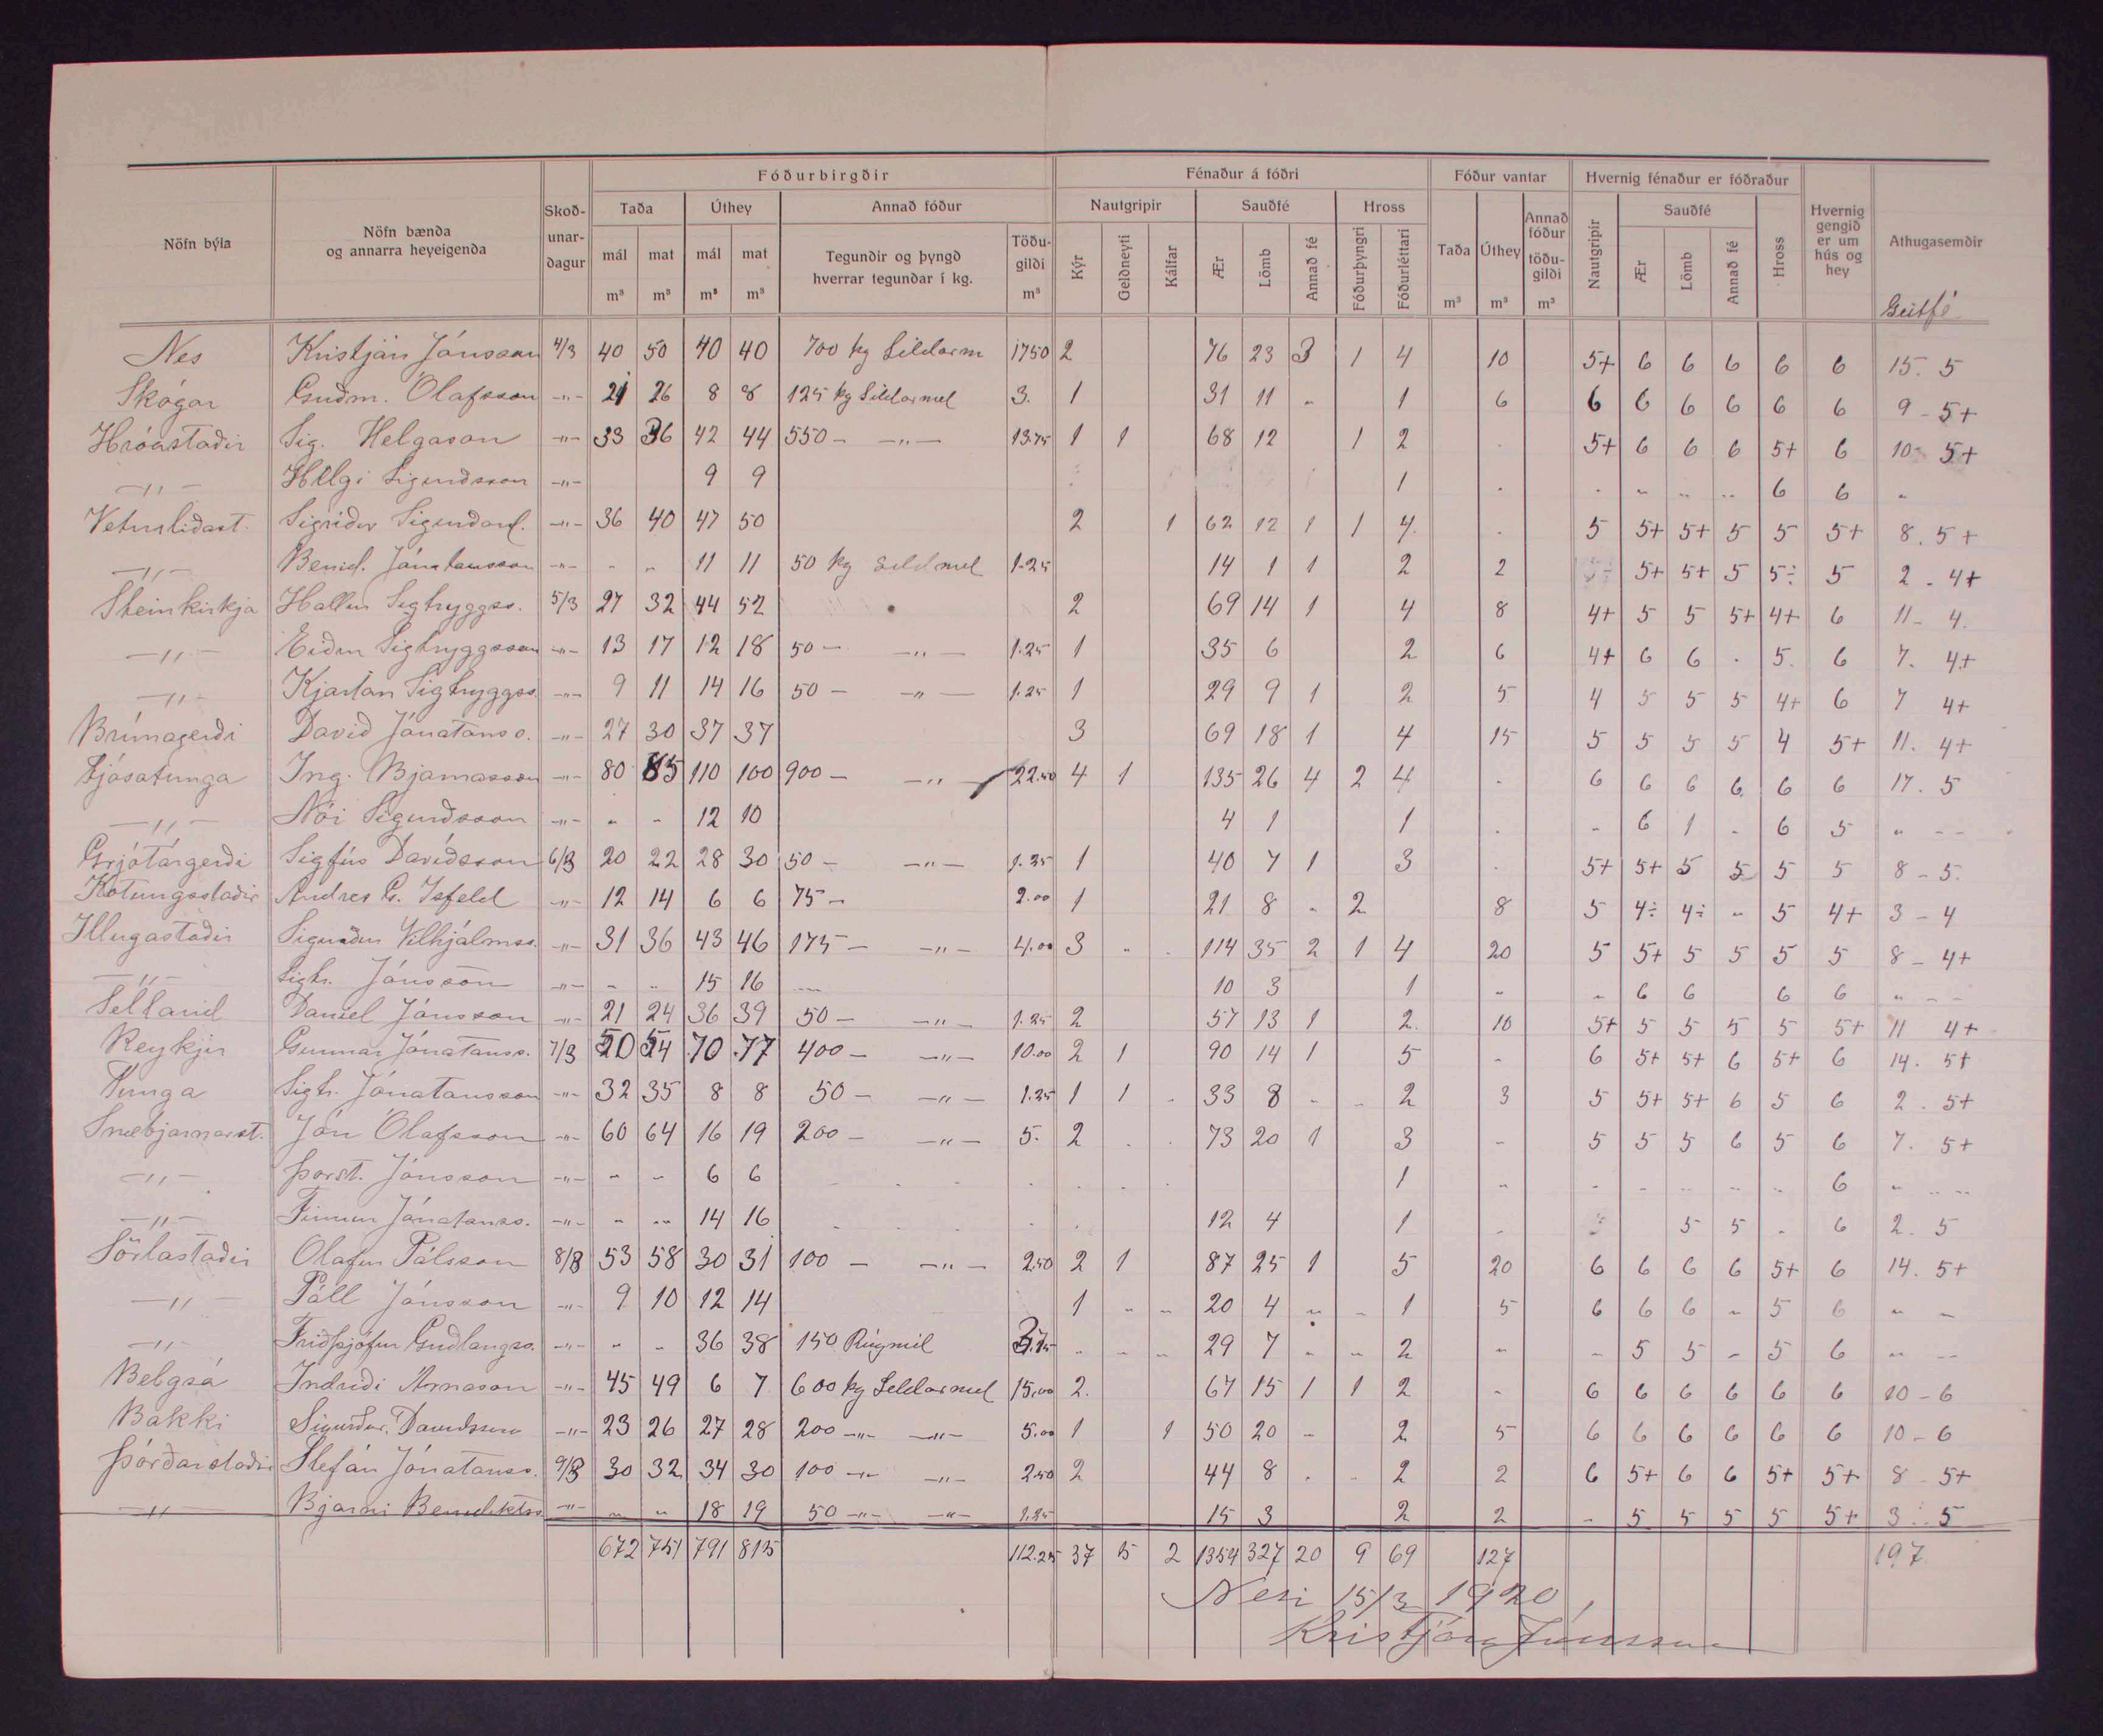 Fóðurbirgðir Fénaður á fóðri Fóður vantar Hvernig fénaður er fóðraður
Nöfn býla Nöfn bænda og annarra heyeigenda Skoð-unar-dagur Taða Úthey Annað fóður Nautgripir Sauðfé Hross Taða Úthey Annað fóður töðu-gildi Nautgripir Sauðfé Hross Hvernig gengið er um hús og hey Athugasemdir
mál mat mál mat Tegundir og þyngd hverrar tegundar í kg. Töðu-gildi Kýr Geldneyti Kálfar Ær Lömb Annað fé Fóðurþyngri Fóðurléttari Ær Lömb Annað fé
m³ m³ m³ m³ m³ m³ m³ m³ Geitfé
Nes Kristján Jónsson 4/3 40 50 40 40 700 kg Síldarm 1750 2 76 23 3 1 4 10 5+ 6 6 6 6 6 15. 5
Skógar Guðm. Ólafsson -"- 21 26 8 8 125 kg Síldarmel 3. 1 31 11 - 1 6 6 6 6 6 6 6 9 - 5+
Hróastaðir Sig. Helgason -"- 33 36 42 44 550 - -"- 13.75 1 1 68 12 1 2 . 5+ 6 6 6 5+ 6 10 - 5+
-"- Helgi Sigurðsson -"- 9 9 1 . . - - - 6 6 -
Veturliðast. Sigríður Sigurðard. -"- 36 40 47 50 2 1 62 12 1 1 4. . 5 5+ 5+ 5 5 5+ 8. 5+
-"- Bened. Jónatansson -"- - - 11 11 50 kg síldmel 1.25 14 1 1 2 2 5+ 5+ 5 5÷ 5 2 - 4+
Steinkirkja Hallur Sigtryggss. 5/3 27 32 44 52 2 69 14 1 4 8 4+ 5 5 5+ 4+ 6 11 - 4.
-"- Eiður Sigtryggsson -"- 13 17 12 18 50 - -"- 1.25 1 35 6 2 6 4+ 6 6 . 5. 6 7. 4+
-"- Kjartan Sigtryggss. -"- 9 11 14 16 50 - -"- 1.25 1 29 9 1 2 5 4 5 5 5 4+ 6 7 4+
Brúnagerði Davíð Jónatanss. -"- 27 30 37 37 3 69 18 1 4 15 5 5 5 5 4 5+ 11. 4+
Fjósatunga Ing. Bjarnasson -"- 80 85 110 100 900 - -"- 22.50 4 1 135 26 4 2 4 . 6 6 6 6. 6 6 17. 5
-"- Nói Sigurðsson -"- - - 12 10 4 1 1 . - 6 1 - 6 5 " - -
Grjótárgerði Sigfús Davíðsson 6/3 20 22 28 30 50 - -"- 1.25 1 40 7 1 3 . 5+ 5+ 5 5 5 5 8 - 5.
Kotungsstaðir Andres G. Isfeld -"- 12 14 6 6 75 - 2.00 1 21 8 - 2 8 5 4÷ 4÷ - 5 4+ 3 - 4
Illugastaðir Sigurður Vilhjálmss. -"- 31 36 43 46 175 - -"- 4.00 3 . . 114 35 2 1 4 20 5 5+ 5 5 5 5 8 - 4+
-"- Sigtr. Jónsson -"- - - 15 16 - 10 3 1 - - 6 6 6 6 " - -
Selland Daníel Jónsson -"- 21 24 36 39 50 - -"- 1.25 2 57 13 1 2. 10 5+ 5 5 5 5 5+ 11 4+
Reykjir Gunnar Jónatanss. 7/3 50 54 70 77 400 - -"- 10.00 2 1 90 14 1 5 - 6 5+ 5+ 6 5+ 6 14. 5+
Tunga Sigtr. Jónatansson -"- 32 35 8 8 50 - -"- 1.25 1 1 . 33 8 - - 2 3 5 5+ 5+ 6 5 6 2. 5+
Snæbjarnarst. Jón Ólafsson -"- 60 64 16 19 200 - -"- 5. 2 . . 73 20 1 3 - 5 5 5 6 5 6 7. 5+
-"- Þorst. Jónsson -"- - - 6 6 1 - - - - - - 6 - - -
-"- Finnur Jónatanss. -"- - - 14 16 12 4 1 . 5 5 . 6 2. 5
Sörlastaðir Olafur Pálsson 8/3 53 58 30 31 100 - -"- 2.50 2 1 87 25 1 5 20 6 6 6 6 5+ 6 14. 5+
-"- Páll Jónsson -"- 9 10 12 14 1 - - 20 4 - - 1 5 6 6 6 - 5 6 - -
-"- Friðþjófur Guðlaugss. -"- - - 36 38 150 Rúgmél 3.75 - - - 29 7 - - 2 - - 5 5 - 5 6 - -
Belgsá Indriði Arnason -"- 45 49 6 7 600 kg Síldarmel 15.00 2. 67 15 1 1 2 - 6 6 6 6 6 6 10 - 6
Bakki Sigurður Davíðsson -"- 23 26 27 28 200 -"- -"- 5.00 1 1 50 20 - 2 5 6 6 6 6 6 6 10 - 6
Þórðarstaðir Stefán Jónatanss. 9/3 30 32 34 30 100 -"- -"- 2.50 2 44 8 . - 2 2 6 5+ 6 6 5+ 5+ 8 5+
-"- Bjarni Benediktss -"- - - 18 19 50 -"- -"- 1.25 15 3 2 2 - 5 5 5 5 5+ 3 5
672 751 791 815 112.25 37 5 2 1354 327 20 9 69 127 197
Nesi 15/3 1920
Kristján Jónsson